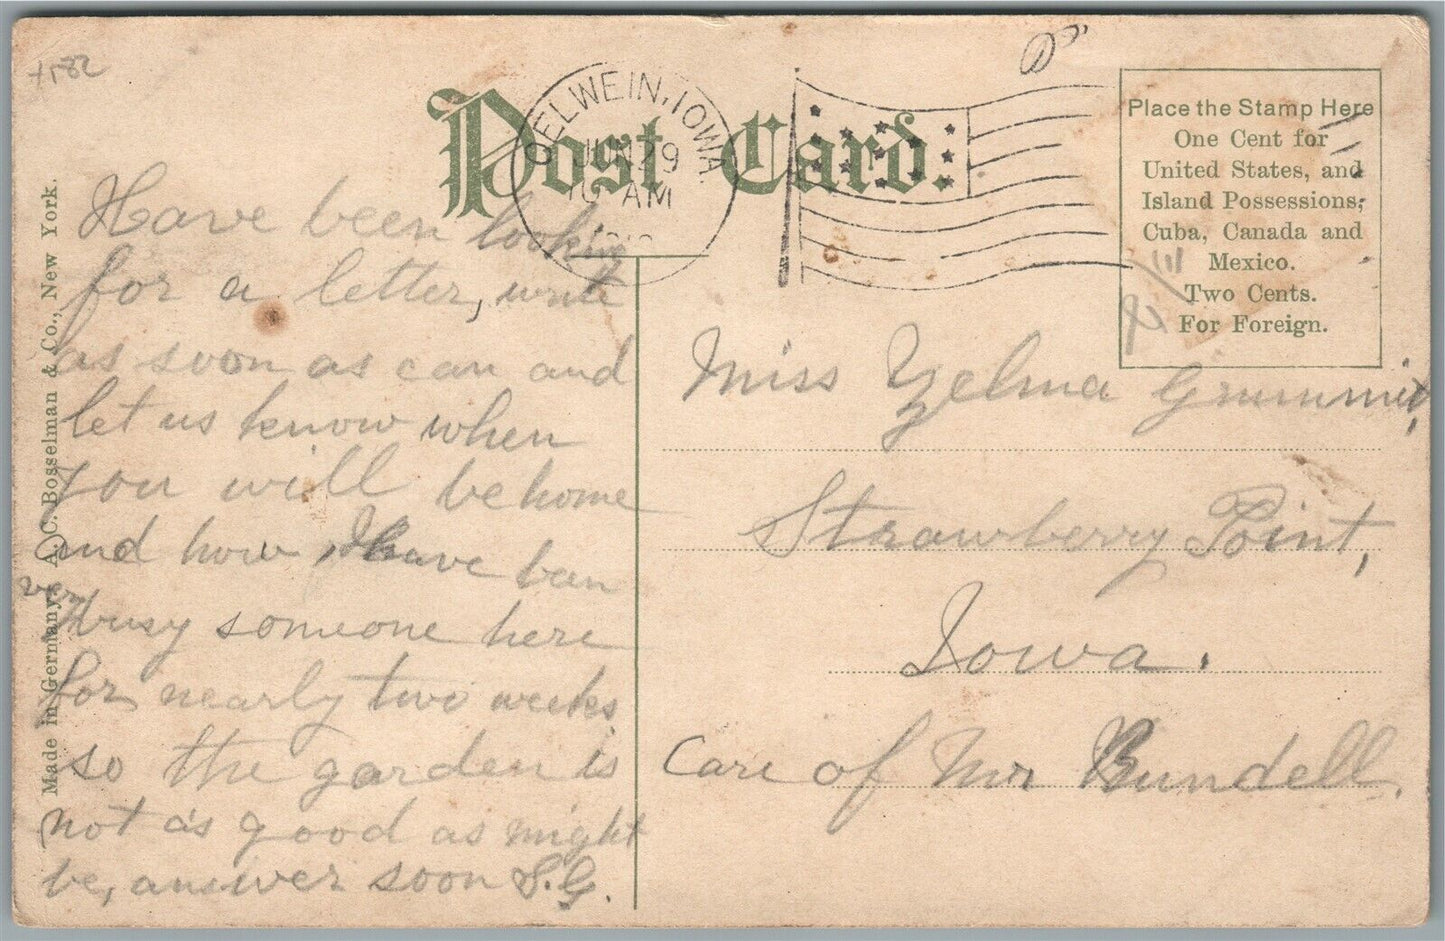 +582
Post Card.
OELWEIN, IOWA.
JUN 29
10 AM
Place the Stamp Here
One Cent for
United States, and
Island Possessions,
Cuba, Canada and
Mexico.
Two Cents.
For Foreign.
Made in Germany. A. C. Bosselman & Co., New York.
Have been looking
for a letter, write
as soon as can and
let us know when
you will be home
and how, I have ban
very
busy someone here
for nearly two weeks
so the garden is
not as good as might
be, answer soon S.G.
Miss Zelma Grimmit,
Strawberry Point,
Iowa.
Care of Mr Bundell.